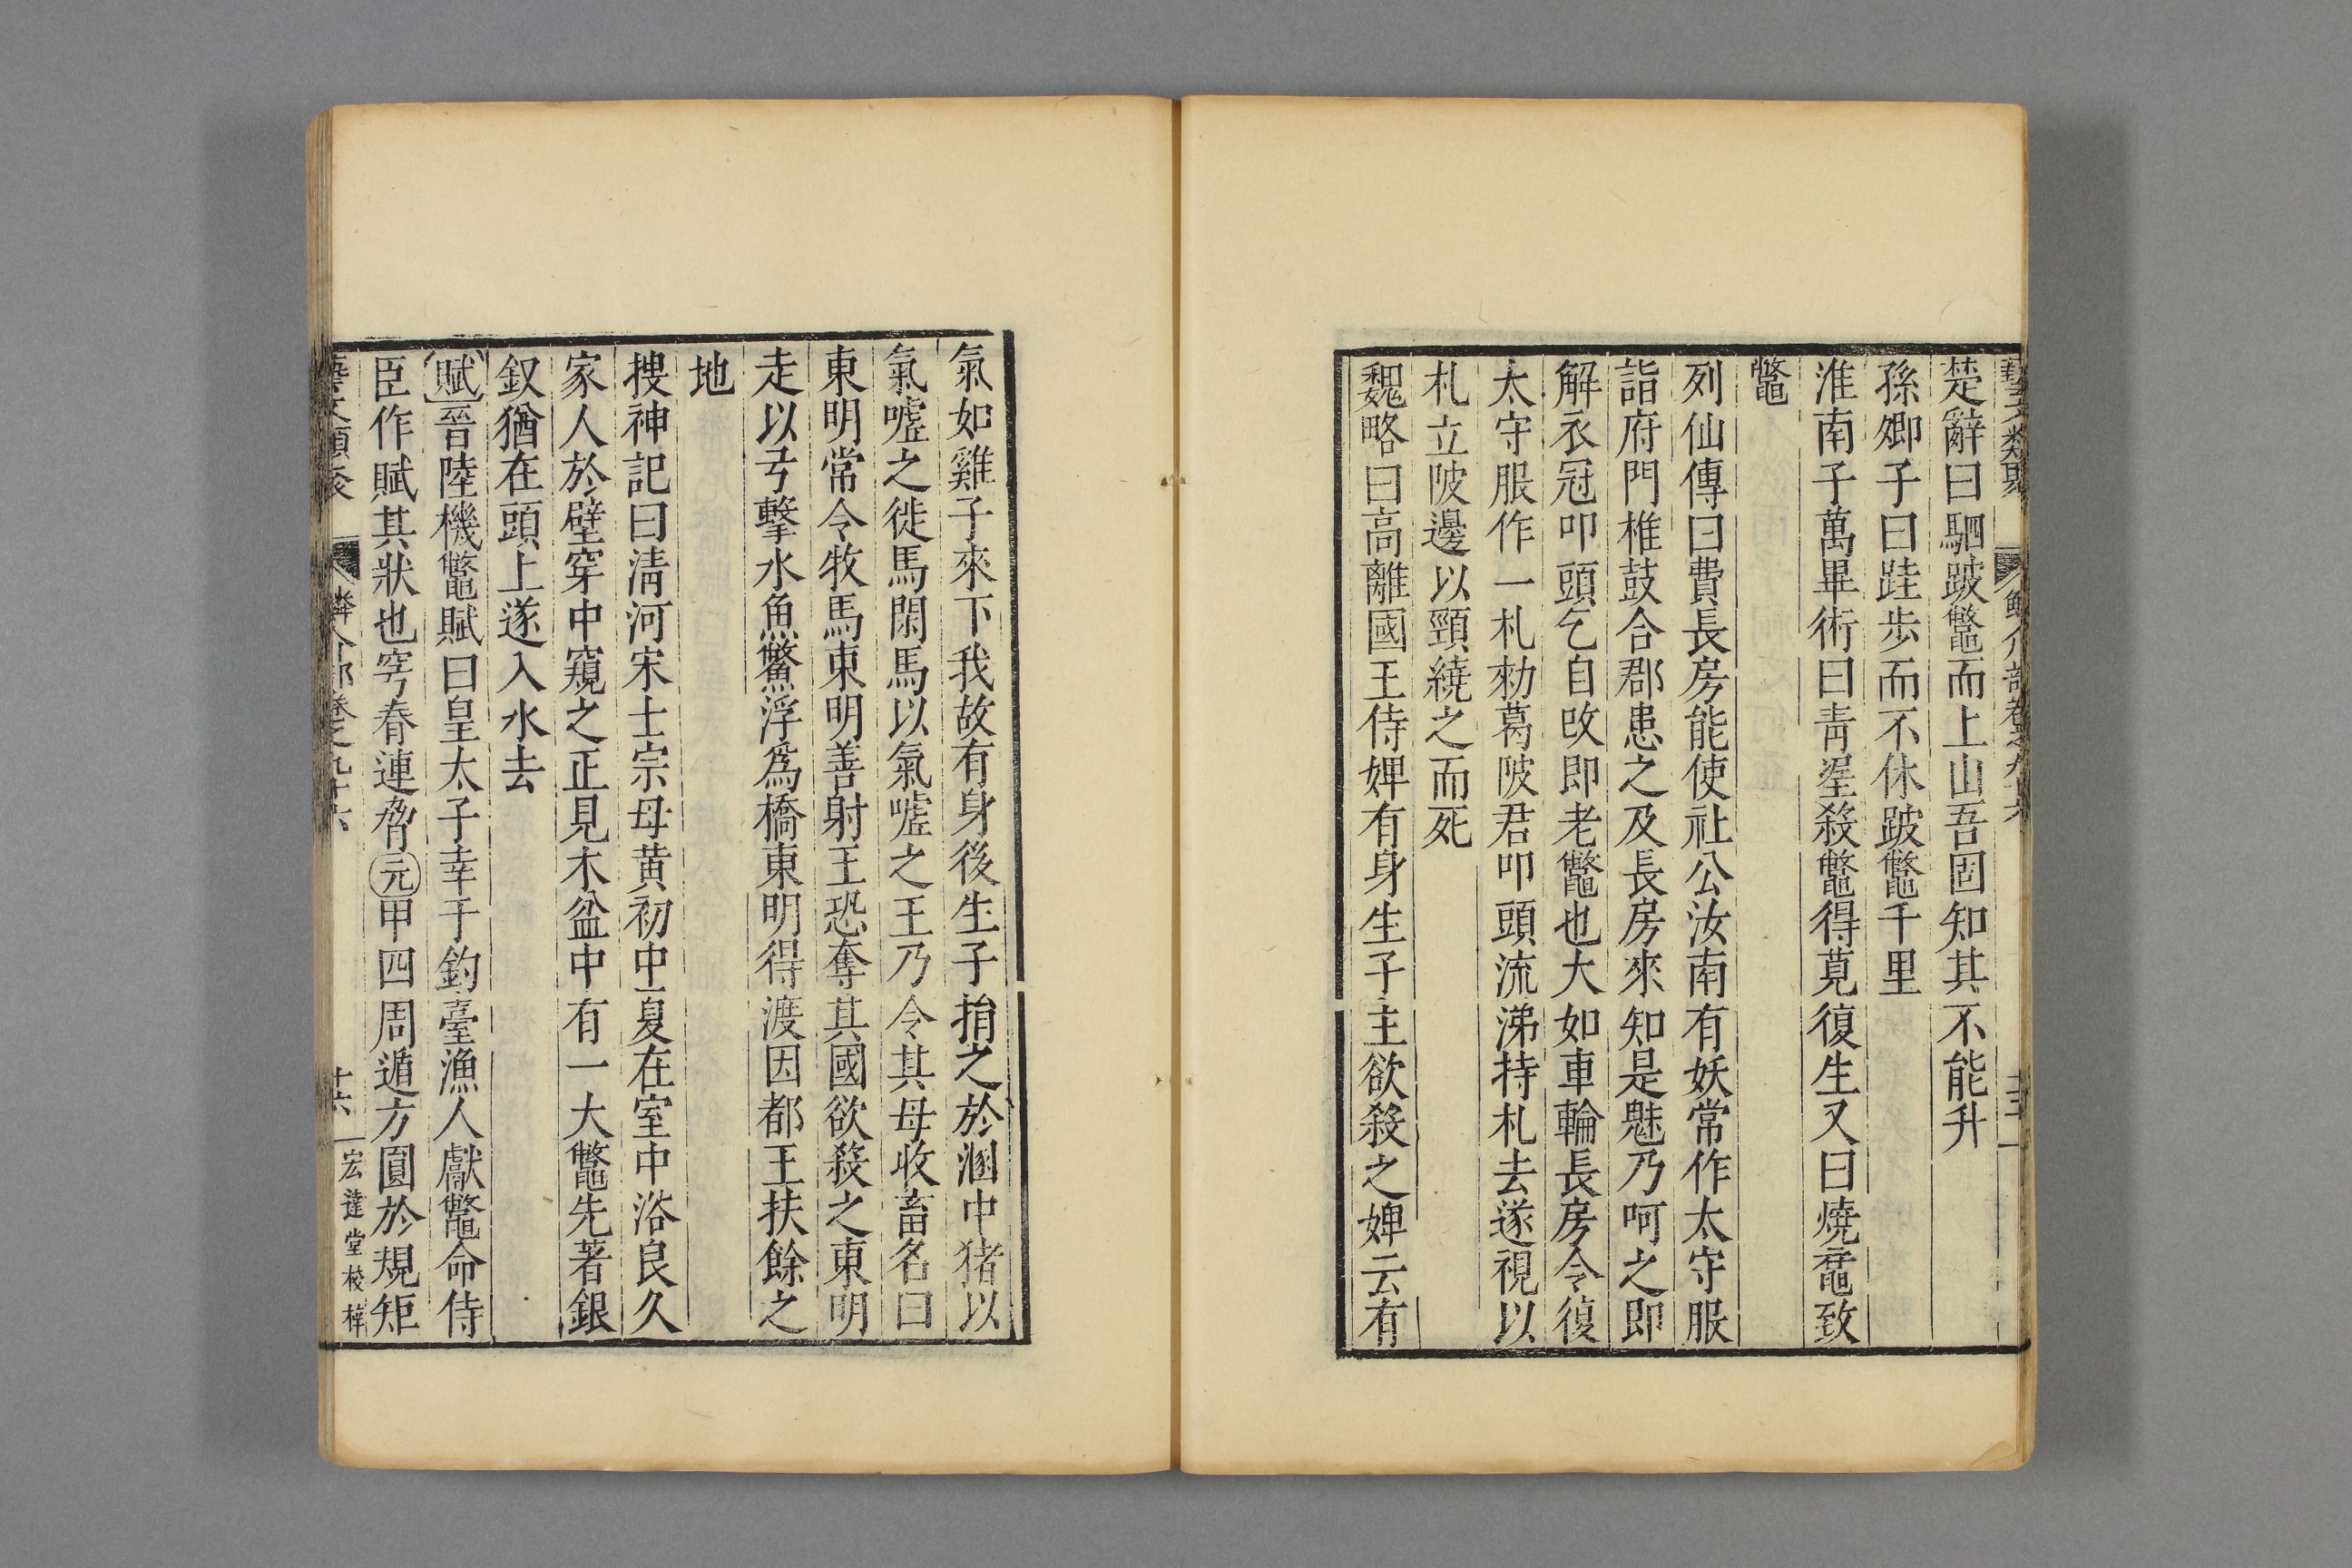 藝文類聚 鱗介部卷之九十六
楚辭曰駟跛鼈而上山吾固知其不能升
孫卿子曰跬歩而不休跛鼈千里
淮南子萬畢術曰靑埿殺鼈得莧復生又曰燒黿致
鼈
列仙傳曰費長房能使社公汝南有妖常作太守服
詣府門椎鼓合郡患之及長房來知是魅乃呵之即
解衣冠叩頭乞自改即老鼈也大如車輪長房令復
太守服作一札勑葛陂君叩頭流涕持札去遂視以
札立陂邊以頸繞之而死
魏略曰高離國王侍婢有身生子主欲殺之婢云有
氣如雞子來下我故有身後生子捐之於溷中猪以
氣噓之徙馬閑馬以氣噓之王乃令其母收畜名曰
東明常令牧馬東明善射王恐奪其國欲殺之東明
走以弓擊水魚鱉浮爲橋東明得渡因都王扶餘之
地
搜神記曰淸河宋士宗母黄初中夏在室中浴良久
家人於壁穿中窺之正見木盆中有一大鼈先著銀
釵猶在頭上遂入水去
賦晉陸機鼈賦曰皇太子幸于釣臺漁人獻鼈命侍
臣作賦其狀也穹脊連脅元甲四周遁方圓於規矩
藝文類聚 鱗介部卷之九十六 十六 宏達堂校梓